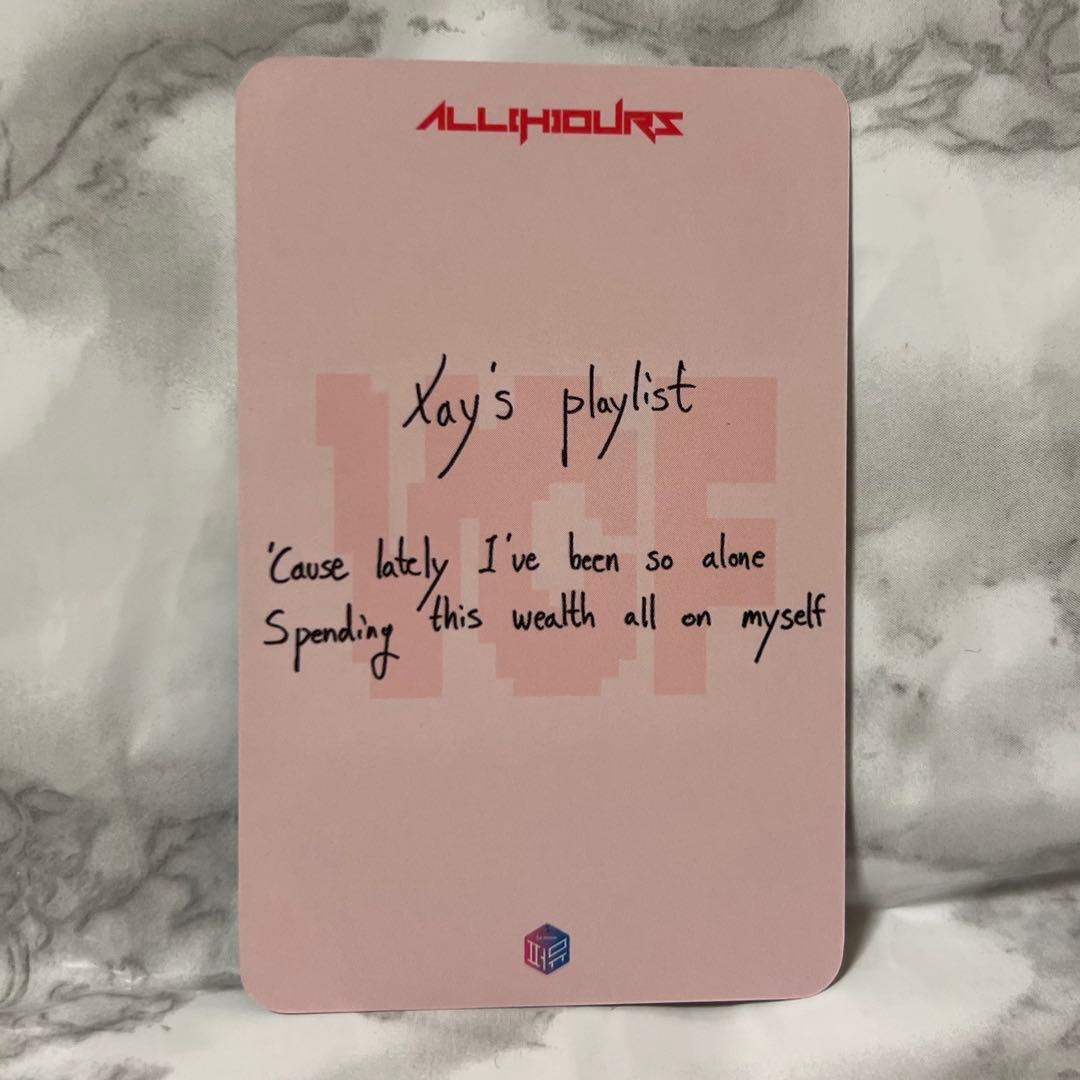 ALL(H)OURS
Xay's playlist
VCF
'Cause lately I've been so alone
Spending this wealth all on myself
퍼뮤